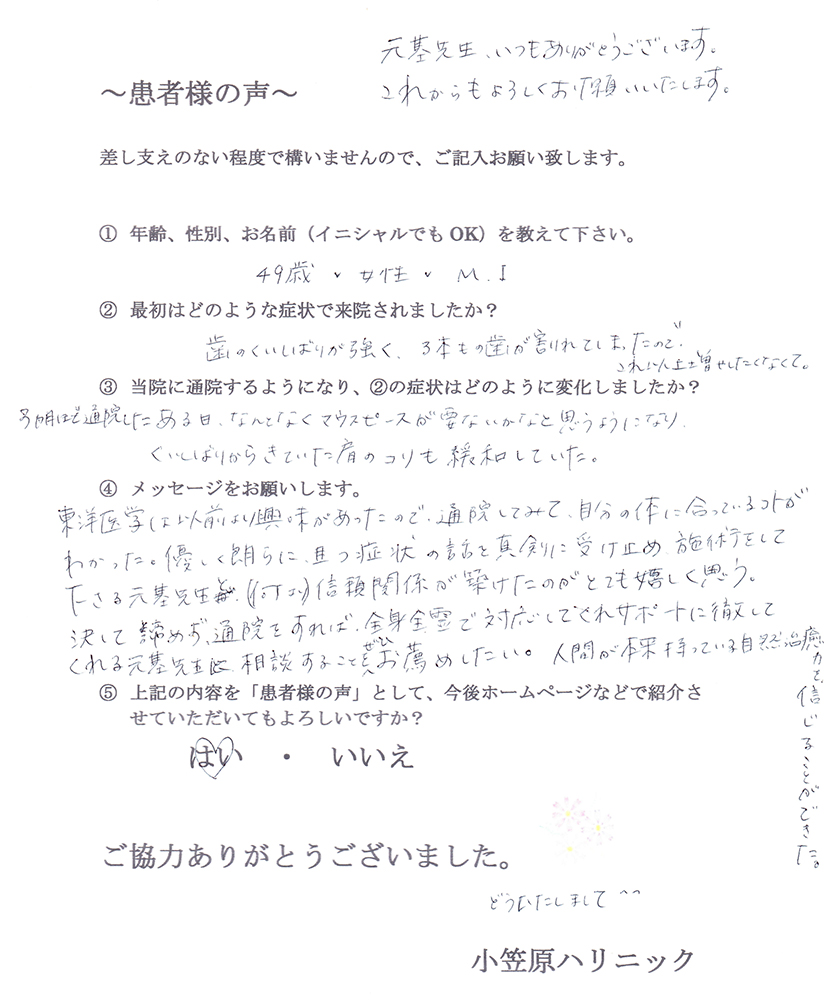 元基先生、いつもありがとうございます。
これからもよろしくお願いいたします。
～患者様の声～
差し支えのない程度で構いませんので、ご記入お願い致します。
① 年齢、性別、お名前（イニシャルでも OK）を教えて下さい。
49歳・女性・M.I
② 最初はどのような症状で来院されましたか？
歯のくいしばりが強く、3本もの歯が割れてしまったので、
これ以上増やしたくなくて。
③ 当院に通院するようになり、②の症状はどのように変化しましたか？
3ヶ月ほど通院したある日、なんとなくマウスピースが要ないかなと思うようになり、
くいしばりからきていた肩のコリも緩和していた。
④ メッセージをお願いします。
東洋医学は以前より興味があったので、通院してみて、自分の体に合っているコトが
わかった。優しく朗らに、且つ症状の話を真剣に受け止め、施術をして
下さる元基先生と、(何より)信頼関係が築けたのがとても嬉しく思う。
決して諦めず、通院をすれば、全身全霊で対応してくれサポートに徹して
くれる元基先生に、相談することをぜひお薦めしたい。人間が本来持っている自然治癒
力を信じることができた。
⑤ 上記の内容を「患者様の声」として、今後ホームページなどで紹介さ
せていただいてもよろしいですか？
はい ・ いいえ
ご協力ありがとうございました。
どういたしまして^^
小笠原ハリニック